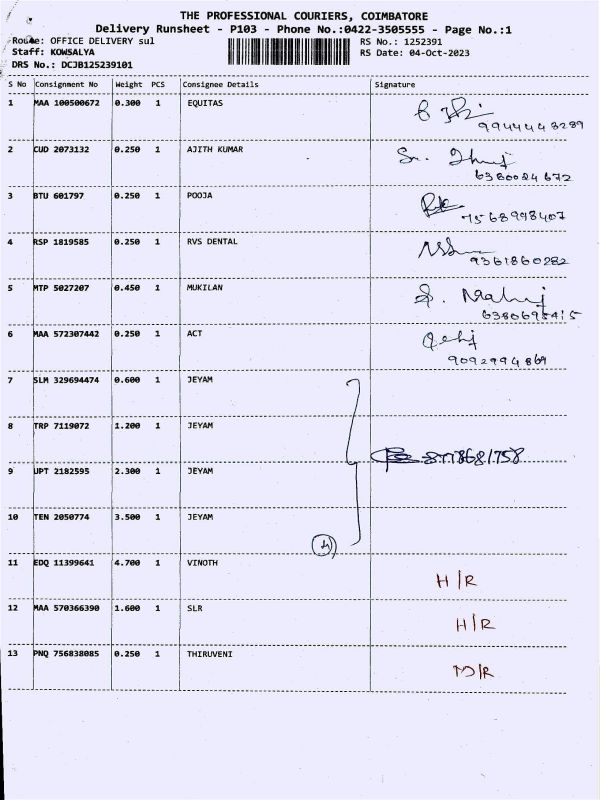 THE PROFESSIONAL COURIERS, COIMBATORE
Delivery Runsheet - P103 - Phone No.:0422-3505555 - Page No.:1
Route: OFFICE DELIVERY sul RS No.: 1252391
Staff: KOWSALYA RS Date: 04-Oct-2023
DRS No.: DCJB125239101
S No Consignment No Weight PCS Consignee Details Signature
1 MAA 100500672 0.300 1 EQUITAS
9944448289
2 CUD 2073132 0.250 1 AJITH KUMAR
6380024672
3 BTU 601797 0.250 1 POOJA
7568998407
4 RSP 1819585 0.250 1 RVS DENTAL
9361860282
5 MTP 5027207 0.450 1 MUKILAN
6 MAA 572307442 0.250 1 ACT
9092994869
7 SLM 329694474 0.600 1 JEYAM
8 TRP 7119072 1.200 1 JEYAM
8778681758
9 UPT 2182595 2.300 1 JEYAM
10 TEN 2050774 3.500 1 JEYAM
4
11 EDQ 11399641 4.700 1 VINOTH
H/R
12 MAA 570366390 1.600 1 SLR
H/R
13 PNQ 756838085 0.250 1 THIRUVENI